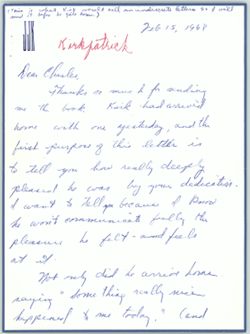 (This is what Kirk would call an indiscrete letter so I will
send it before he gets home.)
Feb 15, 1968
Kirkpatrick
Dear Charles,
Thanks so much for sending
me the book. Kirk had arrived
home with one yesterday, and the
first purpose of this letter is
to tell you how really deeply
pleased he was by your dedication.
I want to tell you because I know
he won't communicate fully the
pleasure he felt - and feels
at it.
Not only did he arrive home
saying "something really nice
happened to me today," (and